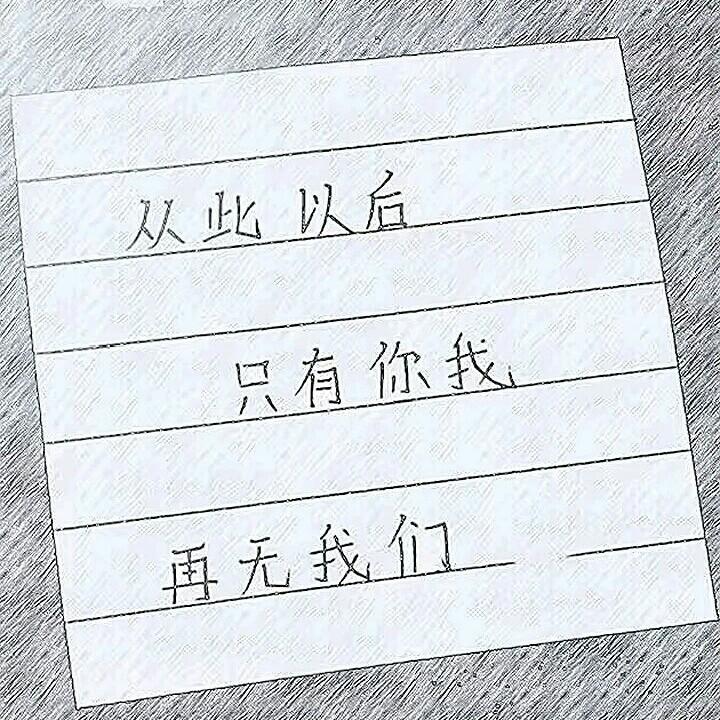 从此以后
只有你我
再无我们